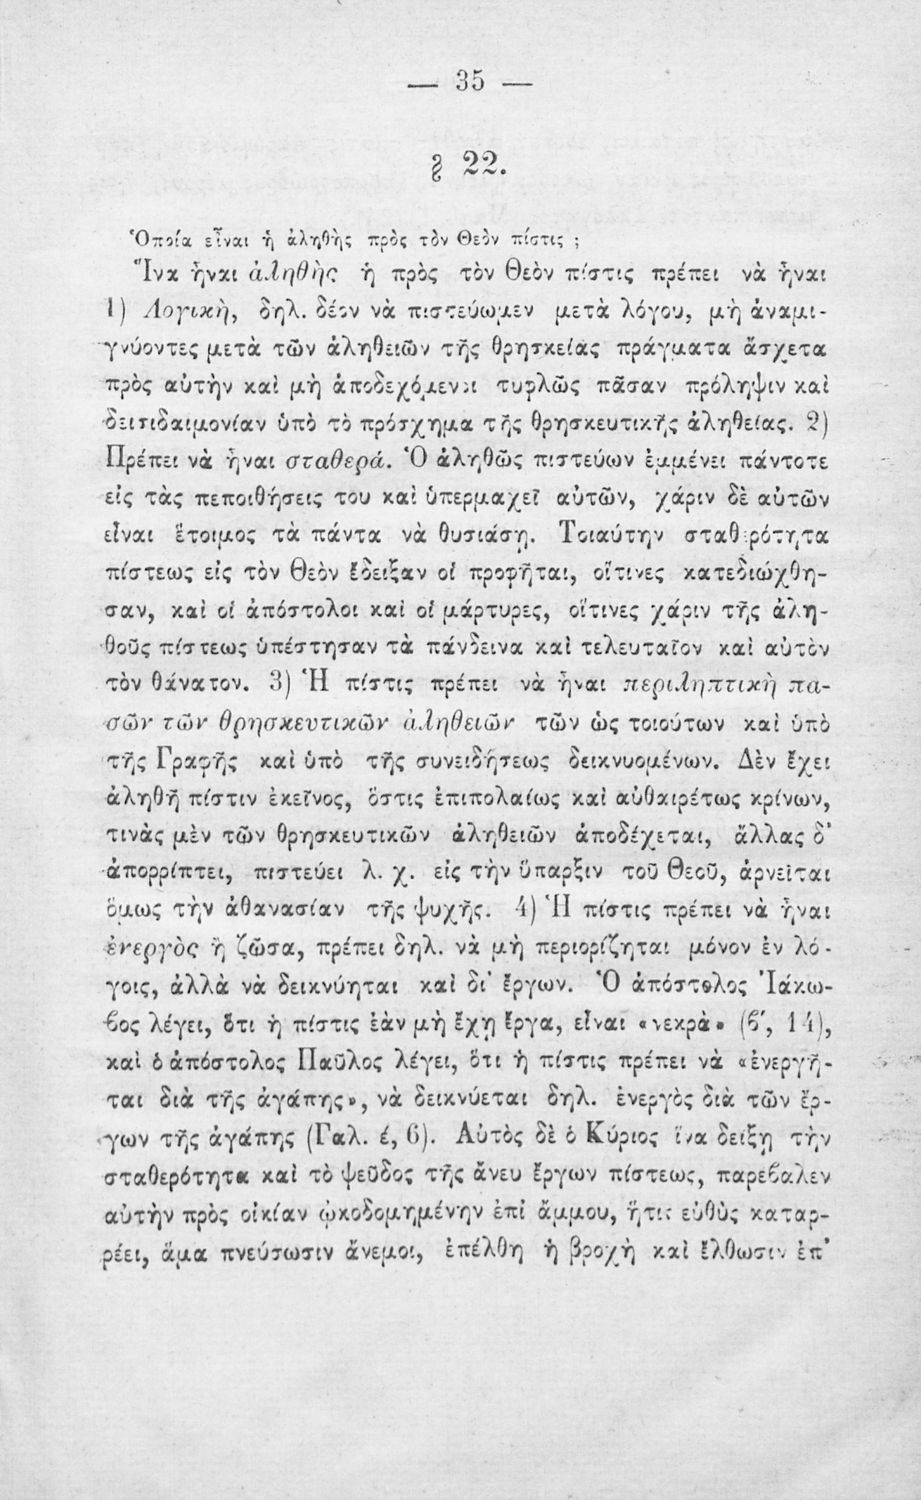 — 35 —
§ 22.
Ὁποία εἶναι ἡ ἀληθὴς πρὸς τὸν Θεὸν πίστις ;
Ἵνα ἦναι ἀληθὴς ἡ πρὸς τὸν Θεὸν πίστις πρέπει νὰ ἦναι
1) Λογικὴ, δηλ. δέον νὰ πιστεύωμεν μετὰ λόγου, μὴ ἀναμι-
γνύοντες μετὰ τῶν ἀληθειῶν τῆς θρησκείας πράγματα ἄσχετα
πρὸς αὐτὴν καὶ μὴ ἀποδεχόμενοι τυφλῶς πᾶσαν πρόληψιν καὶ
δεισιδαιμονίαν ὑπὸ τὸ πρόσχημα τῆς θρησκευτικῆς ἀληθείας. 2)
Πρέπει νὰ ἦναι σταθερά. Ὁ ἀληθῶς πιστεύων ἐμμένει πάντοτε
εἰς τὰς πεποιθήσεις του καὶ ὑπερμαχεῖ αὐτῶν, χάριν δὲ αὐτῶν
εἶναι ἕτοιμος τὰ πάντα νὰ θυσιάσῃ. Τοιαύτην σταθερότητα
πίστεως εἰς τὸν Θεὸν ἔδειξαν οἱ προφῆται, οἵτινες κατεδιώχθη-
σαν, καὶ οἱ ἀπόστολοι καὶ οἱ μάρτυρες, οἵτινες χάριν τῆς ἀλη-
θοῦς πίστεως ὑπέστησαν τὰ πάνδεινα καὶ τελευταῖον καὶ αὐτὸν
τὸν θάνατον. 3) Ἡ πίστις πρέπει νὰ ἦναι περιληπτικὴ πα-
σῶν τῶν θρησκευτικῶν ἀληθειῶν τῶν ὡς τοιούτων καὶ ὑπὸ
τῆς Γραφῆς καὶ ὑπὸ τῆς συνειδήσεως δεικνυομένων. Δὲν ἔχει
ἀληθῆ πίστιν ἐκεῖνος, ὅστις ἐπιπολαίως καὶ αὐθαιρέτως κρίνων,
τινὰς μὲν τῶν θρησκευτικῶν ἀληθειῶν ἀποδέχεται, ἄλλας δ'
ἀπορρίπτει, πιστεύει λ. χ. εἰς τὴν ὕπαρξιν τοῦ Θεοῦ, ἀρνεῖται
ὅμως τὴν ἀθανασίαν τῆς ψυχῆς. 4) Ἡ πίστις πρέπει νὰ ἦναι
ἐνεργὸς ἢ ζῶσα, πρέπει δηλ. νὰ μὴ περιορίζηται μόνον ἐν λό-
γοις, ἀλλὰ νὰ δεικνύηται καὶ δι' ἔργων. Ὁ ἀπόστολος Ἰάκω-
βος λέγει, ὅτι ἡ πίστις ἐὰν μὴ ἔχῃ ἔργα, εἶναι «νεκρὰ» (β', 14),
καὶ ὁ ἀπόστολος Παῦλος λέγει, ὅτι ἡ πίστις πρέπει νὰ «ἐνεργῆ-
ται διὰ τῆς ἀγάπης», νὰ δεικνύεται δηλ. ἐνεργὸς διὰ τῶν ἔρ-
γων τῆς ἀγάπης (Γαλ. έ, 6). Αὐτὸς δὲ ὁ Κύριος ἵνα δείξῃ τὴν
σταθερότητα καὶ τὸ ψεῦδος τῆς ἄνευ ἔργων πίστεως, παρέβαλεν
αὐτὴν πρὸς οἰκίαν ᾠκοδομημένην ἐπὶ ἄμμου, ἥτις εὐθὺς καταρ-
ρέει, ἅμα πνεύσωσιν ἄνεμοι, ἐπέλθῃ ἡ βροχὴ καὶ ἔλθωσιν ἐπ'